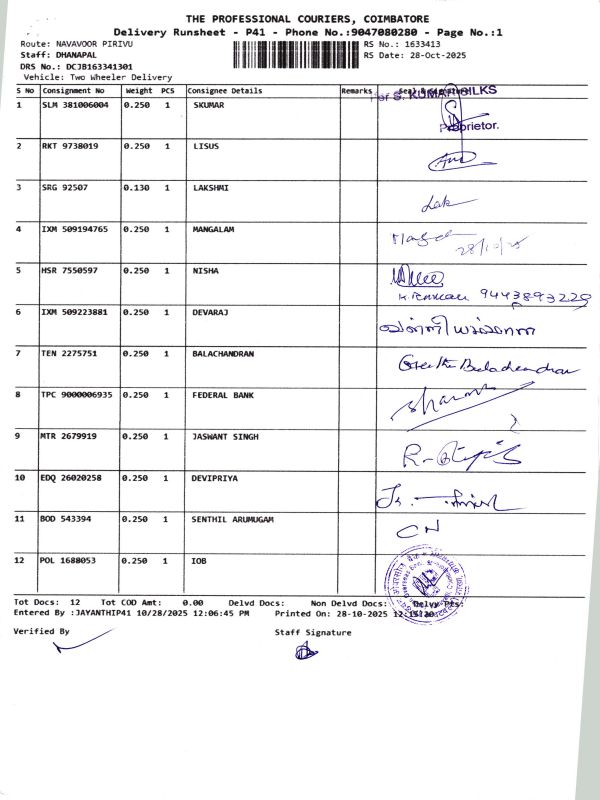 THE PROFESSIONAL COURIERS, COIMBATORE
Delivery Runsheet - P41 - Phone No.:9047080280 - Page No.:1
Route: NAVAVOOR PIRIVU
RS No.: 1633413
Staff: DHANAPAL
RS Date: 28-Oct-2025
DRS No.: DCJB163341301
Vehicle: Two Wheeler Delivery
S No Consignment No Weight PCS Consignee Details Remarks Seal & Signature
For S. KUMAR SILKS
1 SLM 381006004 0.250 1 SKUMAR
Proprietor.
2 RKT 9738019 0.250 1 LISUS
3 SRG 92507 0.130 1 LAKSHMI
4 IXM 509194765 0.250 1 MANGALAM
28/10/25
5 HSR 7550597 0.250 1 NISHA
9443893229
6 IXM 509223881 0.250 1 DEVARAJ
7 TEN 2275751 0.250 1 BALACHANDRAN
Geetha Balachandran
8 TPC 9000006935 0.250 1 FEDERAL BANK
9 MTR 2679919 0.250 1 JASWANT SINGH
10 EDQ 26020258 0.250 1 DEVIPRIYA
11 BOD 543394 0.250 1 SENTHIL ARUMUGAM
CN
12 POL 1688053 0.250 1 IOB
Tot Docs: 12 Tot COD Amt: 0.00 Delvd Docs: Non Delvd Docs: Delvy Pts:
Entered By :JAYANTHIP41 10/28/2025 12:06:45 PM Printed On: 28-10-2025
Verified By
Staff Signature